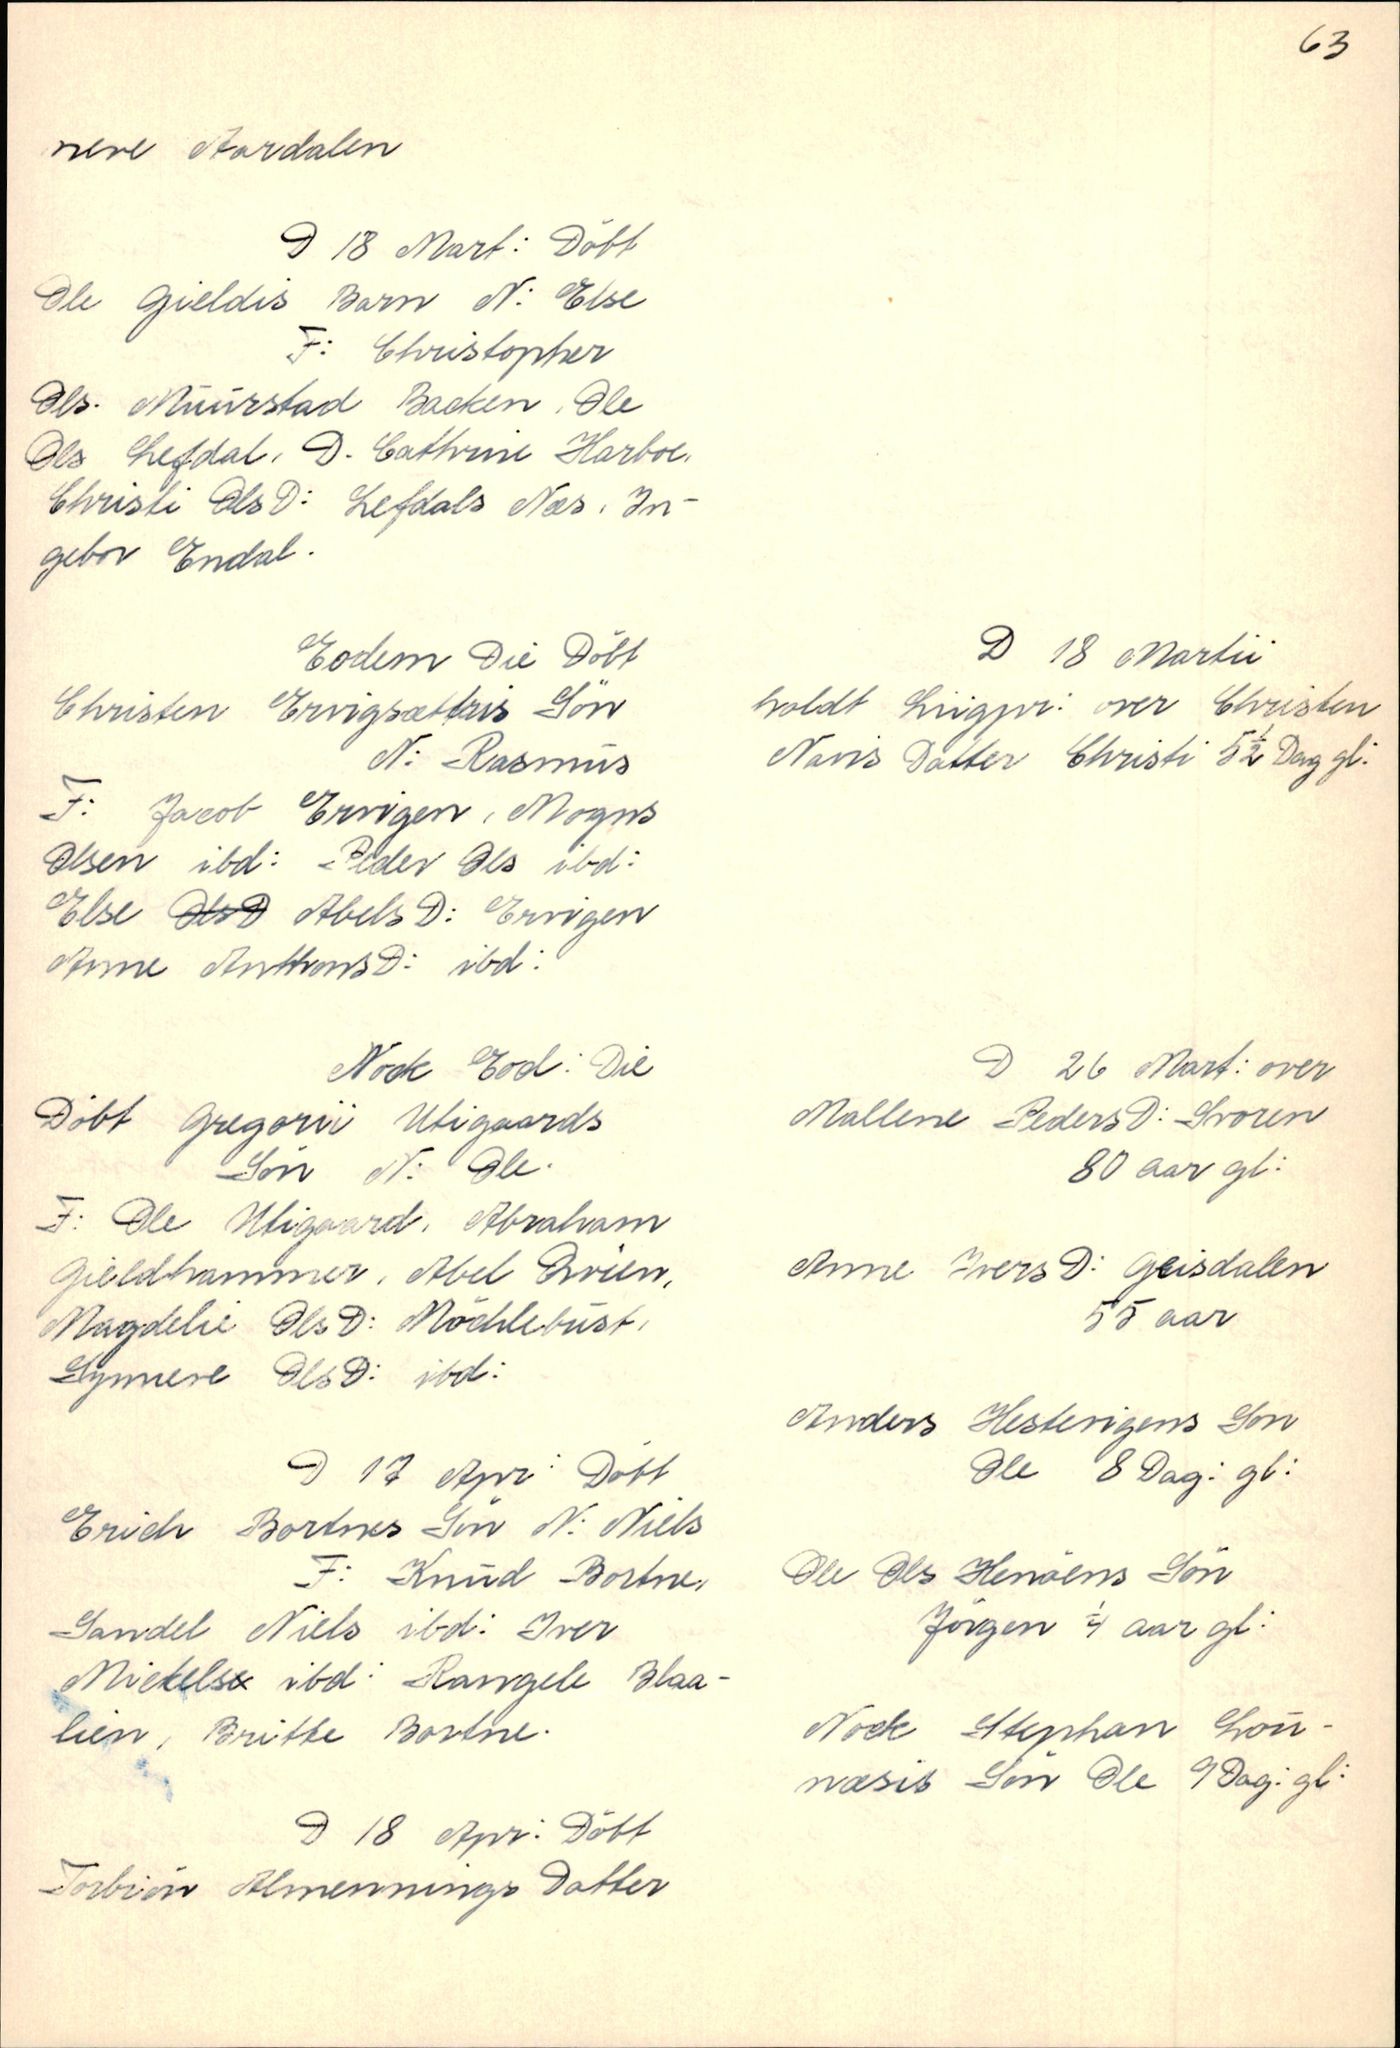 63
nere Aardalen
D 18 Mart: Döbt
Ole Gieldis Barn N: Else
F: Christopher
Ols. Muurstad Backen, Ole
Ols Lefdal, D. Cathrine Harboe,
Christi OlsD: Lefdals Næs, In-
gebor Endal.
Eodem Die Döbt
Christen Ervigsættris Sön
N: Rasmus
F: Jacob Ervigen, Mogns
Olsen ibd: Peder Ols ibd:
Else OlsD AbelsD: Ervigen
Anne AnthonsD: ibd:
Nock Eod: Die
Döbt Gregorii Utigaards
Sön N: Ole.
F: Ole Utigaard, Abraham
Gieldhammer, Abel Qvien,
Magdeli OlsD: Möchlebust,
Synneve OlsD: ibd:
D 17 Apr: Döbt
Erich Bortnes Sön N: Niels
F: Knud Bortne,
Sandel Niels ibd: Iver
Mickels ibd: Rangele Blaa-
lien, Britte Bortne.
D 18 Apr: Döbt
Torbiön Almennings Datter
D 18 Martii
holdt Liigpr: over Christen
Navis Datter Christi 5 1/2 Dag gl:
D 26 Mart: over
Mallene PedersD: Svoren
80 aar gl:
Anne IversD: Geisdalen
55 aar
Anders Hestevigens Son
Ole 8 Dag: gl:
Ole Ols Henöens Sön
Jörgen 1/4 aar gl:
Nock Stephan Lou-
næsis Sön Ole 9 Dag: gl: